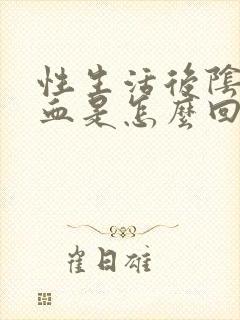 性生活後陰
血是怎麼回
崔日雄